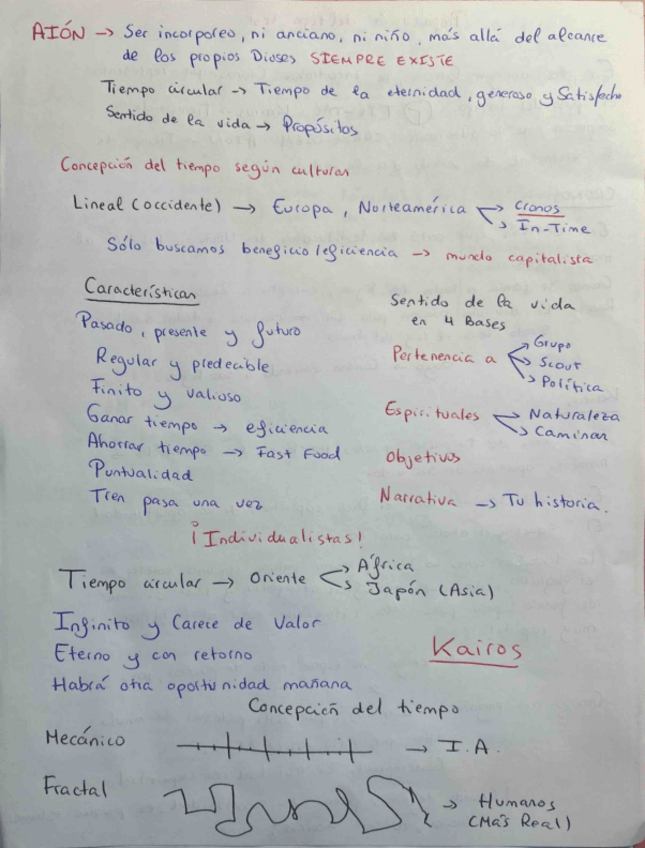 AIÓN → Ser incorporeo, ni anciano, ni niño, más allá del alcance
de los propios Dioses SIEMPRE EXISTE
Tiempo circular → Tiempo de la eternidad, generoso y Satisfecho
Sentido de la vida → Propósitos
Concepción del tiempo según culturas
Lineal (occidente) → Europa, Norteamérica → Cronos
→ In-Time
Sólo buscamos beneficio/eficiencia → mundo capitalista
Características
Pasado, presente y futuro
Regular y predecible
Finito y valioso
Ganar tiempo → eficiencia
Ahorrar tiempo → Fast Food
Puntualidad
Tren pasa una vez
Sentido de la vida
en 4 Bases
Pertenencia a → Grupo
→ Scout
→ Política
Espirituales → Naturaleza
→ Caminar
Objetivos
Narrativa → Tu historia.
¡Individualistas!
Tiempo circular → Oriente → África
→ Japón (Asia)
Infinito y Carece de Valor
Eterno y con retorno
Habrá otra oportunidad mañana
Kairos
Concepción del tiempo
Mecánico → I.A.
Fractal → Humanos
(Más Real)